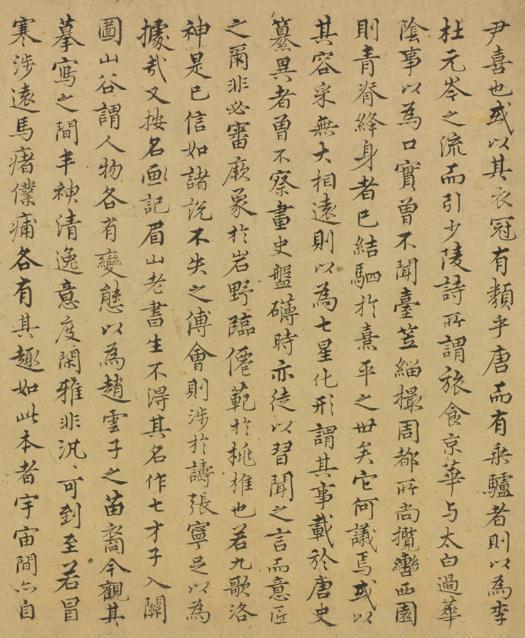 尹喜也或以其衣冠有類乎唐而有乘驢者則以為李
杜元岑之流而引少陵詩所謂旅食京華与太白過華
陰事以為口實曽不聞臺笠緇撮周都所尚攬轡西園
則青脊絳身者已結駟於熹平之世矣它何議焉或以
其容宷無大相遠則以為七星化形謂其事載於唐史
纂異者曽不察畫史盤礴時亦徒以習聞之言而意匠
之爾非必審厥象於岩野臨僊範於桃椎也若九歌洛
神是已信如諸說不失之傅會則涉於譸張寧足以為
據哉又按名畫記眉山老書生不得其名作七才子入關
圖山谷謂人物各有變態以為趙雲子之苗裔今觀其
摹寫之間丰神清逸意度閑雅非汎〻可到至若冒
寒涉遠馬瘏僕痡各有其趣如此本者宇宙間亦自